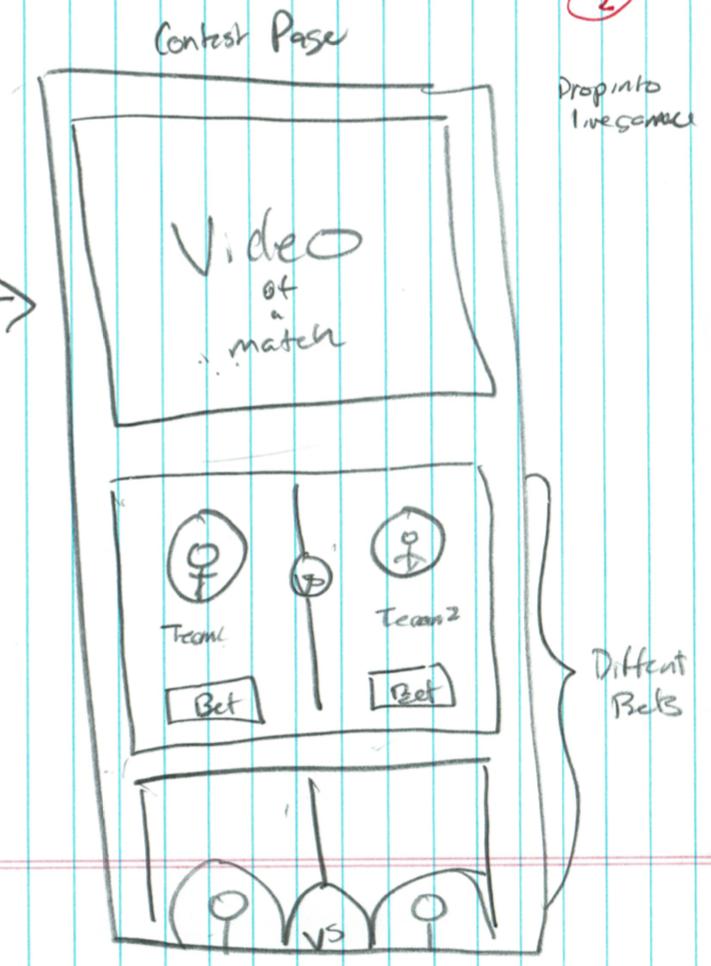 2
Contest Page
Drop into
Video
of
a
match
VS
Team1
Team2
Bet
Bet
Diffent
Bets
VS